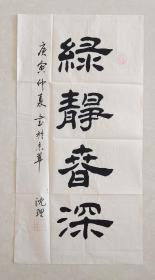 緑靜春深
庚寅仲夏
沈理